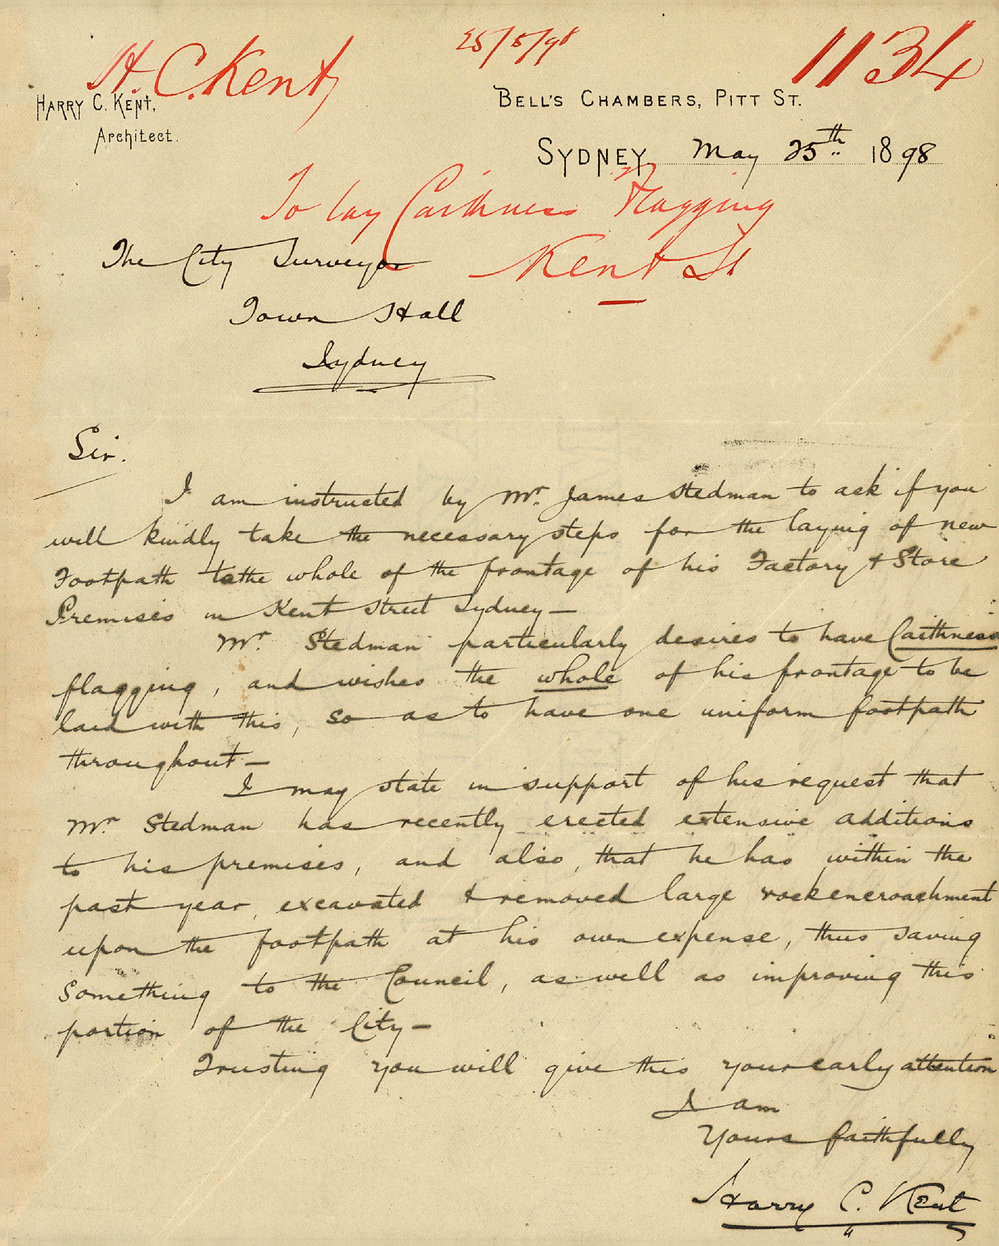 H. C. Kent
25/5/98
1134
HARRY C. KENT,
Architect.
BELL'S CHAMBERS, PITT ST.
SYDNEY May 25th 1898
To lay Caithness Flagging
Kent St
The City Surveyor
Town Hall
Sydney
Sir.
I am instructed by Mr. James Stedman to ask if you
will kindly take the necessary steps for the laying of new
Footpath to the whole of the frontage of his Factory & Store
Premises in Kent Street Sydney—
Mr. Stedman particularly desires to have Caithness
flagging, and wishes the whole of his frontage to be
laid with this, so as to have one uniform footpath
throughout—
I may state in support of his request that
Mr. Stedman has recently erected extensive additions
to his premises, and also, that he has within the
past year, excavated & removed large rock encroachment
upon the footpath at his own expense, thus saving
something to the Council, as well as improving this
portion of the City—
Trusting you will give this your early attention
I am
Yours faithfully
Harry C. Kent